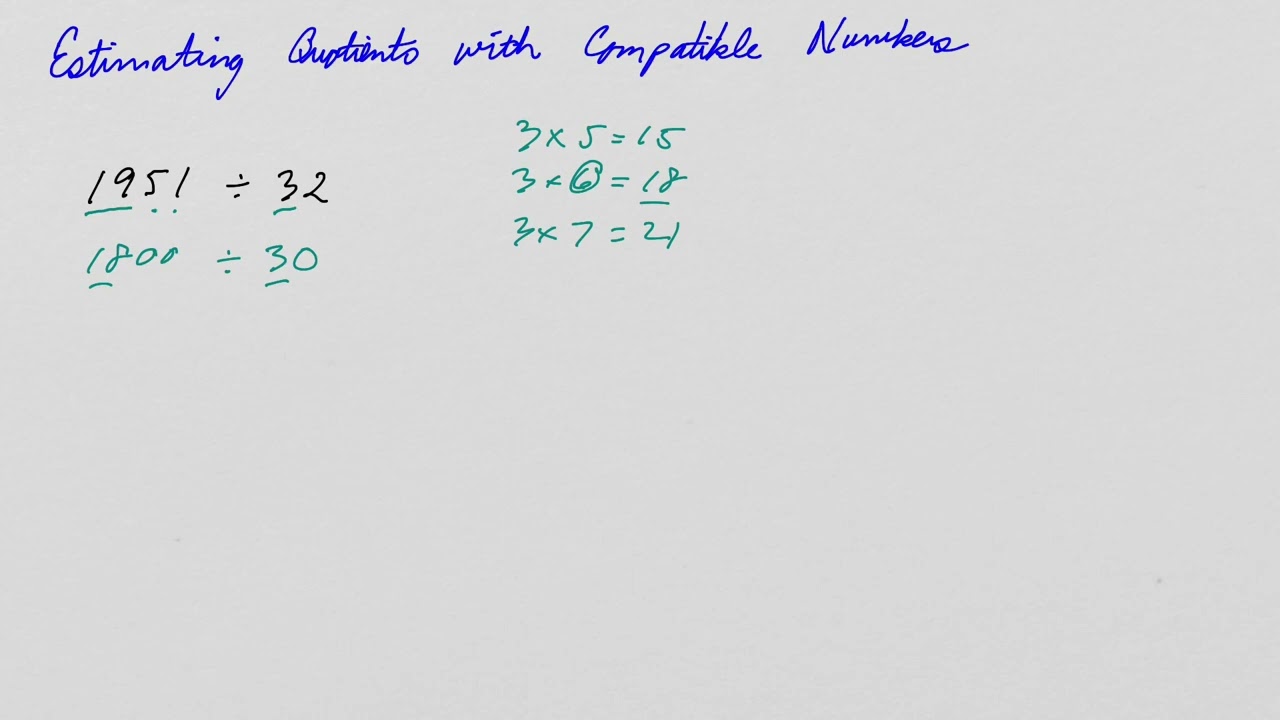 Estimating Quotients with Compatible Numbers
1951 ÷ 32
1800 ÷ 30
3 × 5 = 15
3 × 6 = 18
3 × 7 = 21